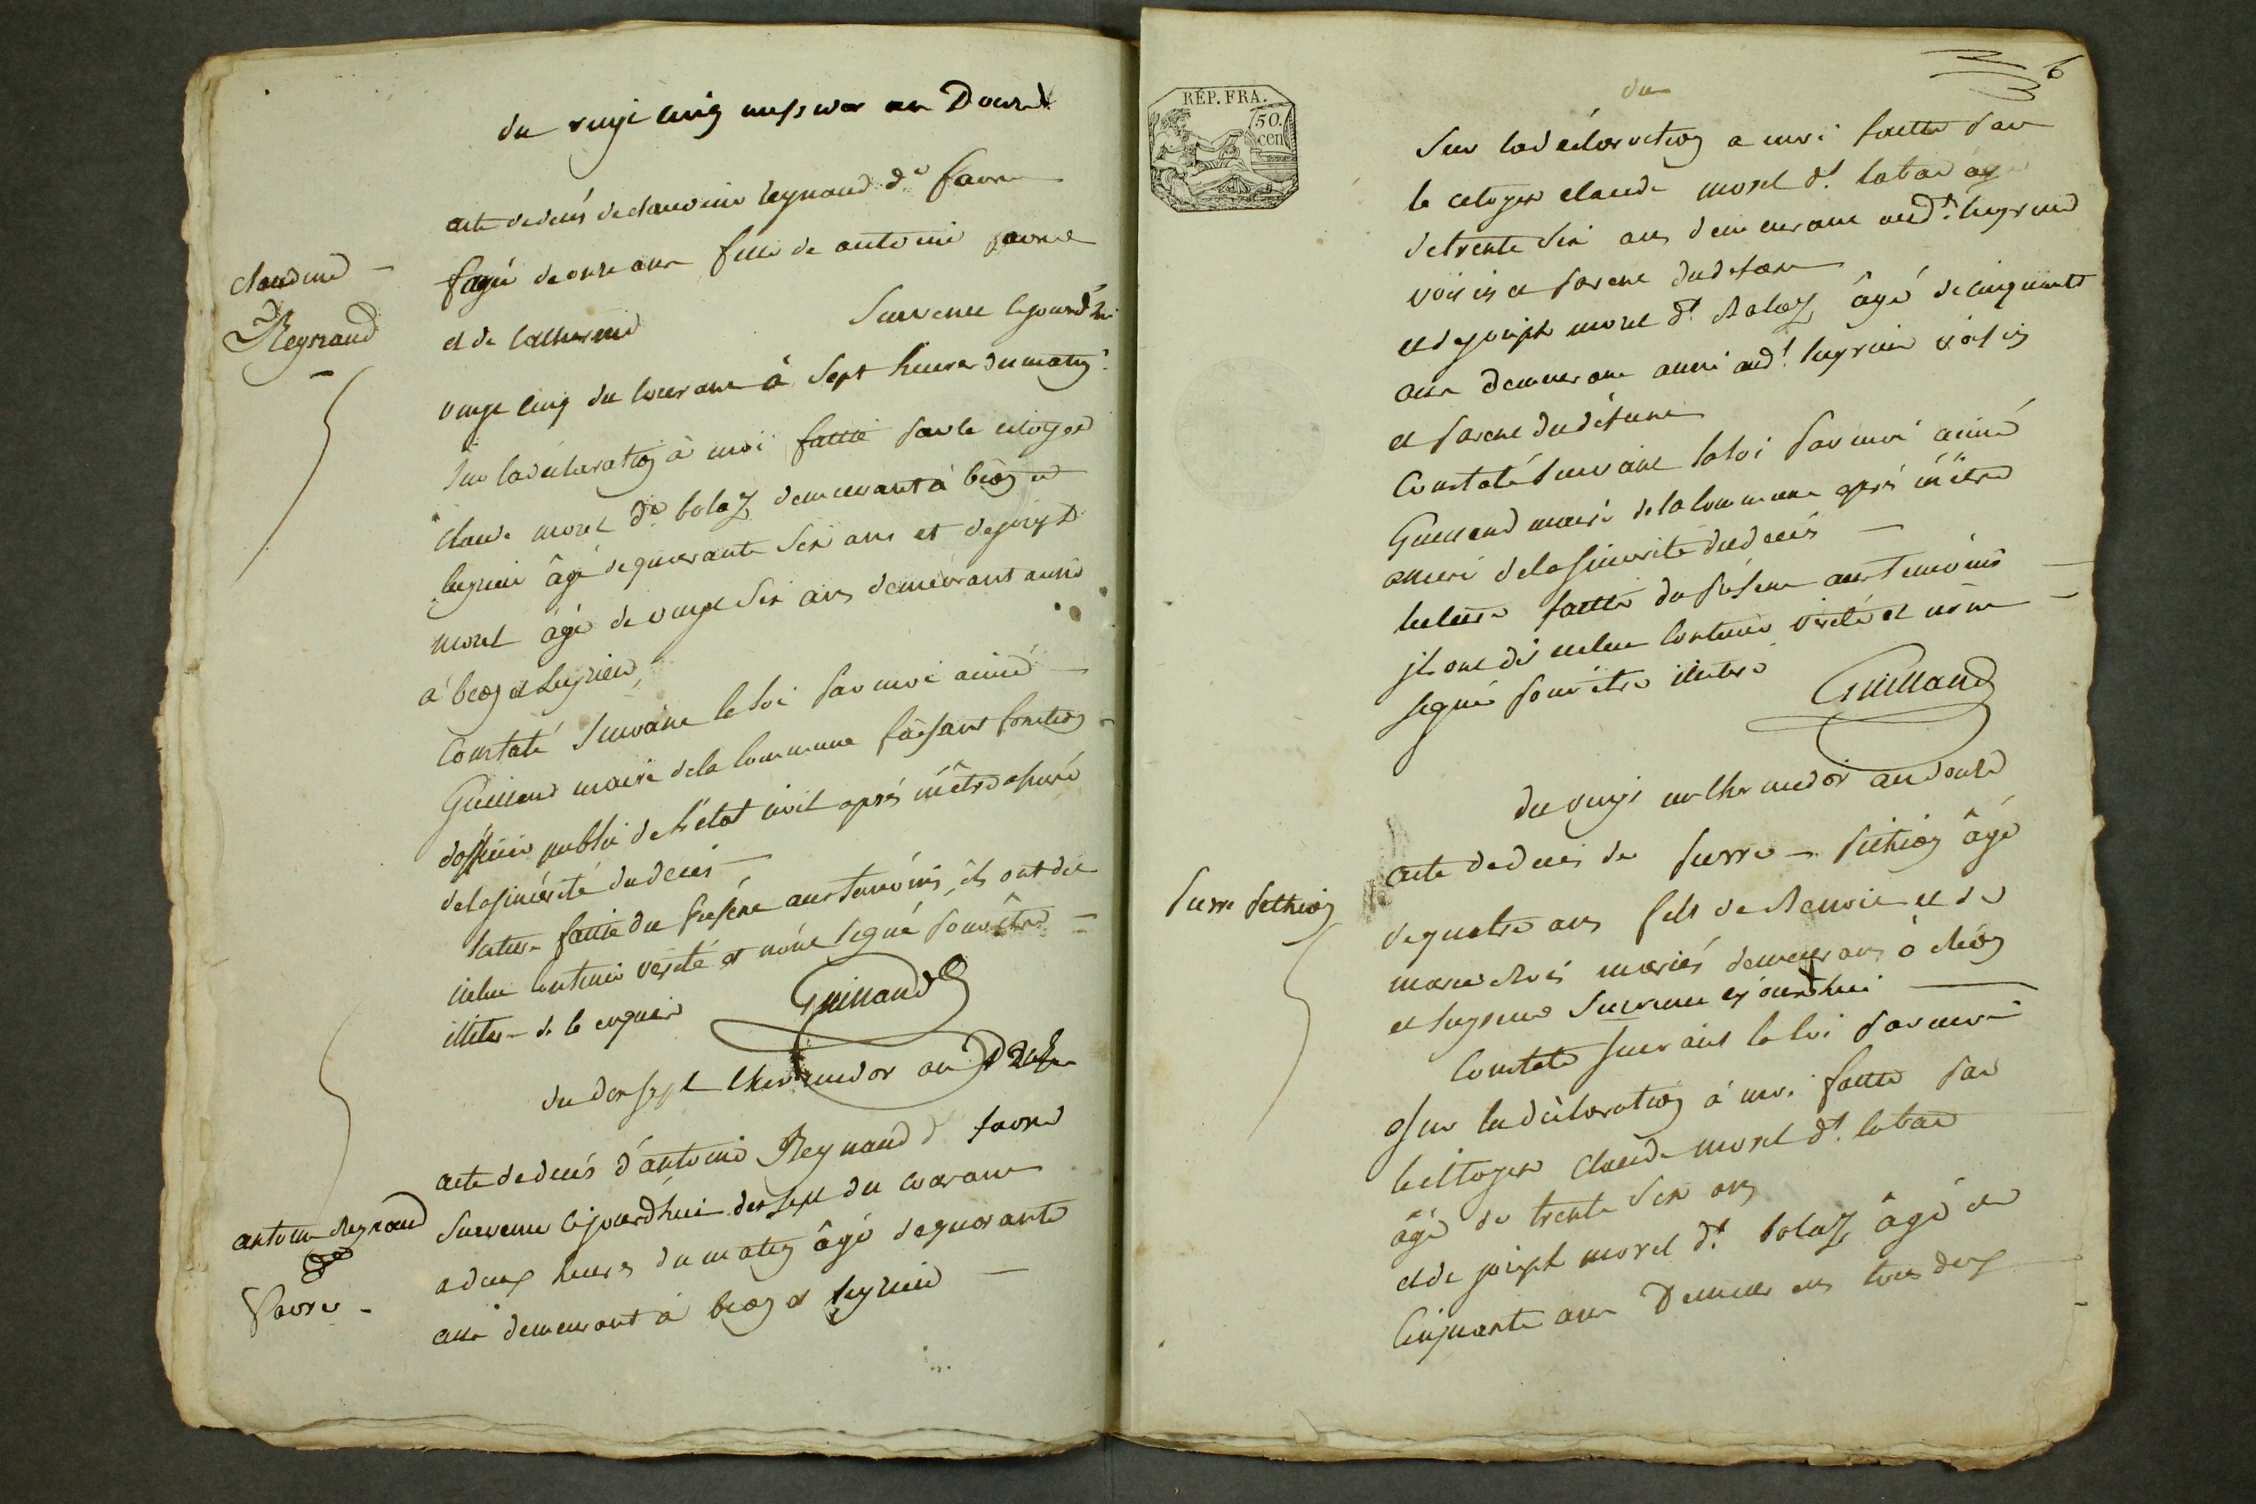 du vingt cinq messidor an Douze
acte de decés de claudine Reynaud dte favre
agée de onze ans fille de antoine favre
et de Catherine Survenu cejourd'hui
vingt cinq du Courant à Sept heures du matin
Claudine
Reynaud
Sur la déclaration à moi faitte par le citoyen
Claude morel dt bolaz demeurant à béon et
luyrieu âgé de quarante Six ans et de joseph
morel âgé de vingt Six ans demeurant aussi
à béon et Luyrieu
Constaté Suivant la loi par moi aimé
Guilland maire de la Commune faisant fonction
d'officier public de l'état civil aprés m'être assuré
de la sincérité du decés
lecture faitte du présent aux temoins, ils ont dit
icelui contenir vérité et n'ont signé pour être
illiteré de ce enquis
Guilland
du dix sept thermidor an Douze
acte de decés d'antoine Reynaud dt favre
Survenu cejourd'hui dix sept du courant
a deux heures du matin âgé de quarante
ans demeurant à béon et luyrieu
antoine Reynaud
favre
RÉP. FRA.
50.
cen
6
du
Sur la déclaration a moi faitte par
le citoyen claude morel dt labar agé
de trente Six ans demeurant audt luyrieu
voisin et parent du defunt
et de joseph morel dt Bolaz âgé de cinquante
ans demeurant aussi audt luyrieu voisin
et parent du défunt
Constaté Suivant la loi par moi aimé
Guilland maire de la Commune aprés m'être
assuré de la sincerité du decés
lecture faitte du présent aux temoins
ils ont dit icelui Contenir vérité et n'ont
signé pour être illiteré
Guilland
du vingt thermidor an douze
acte de decés de pierre pethion âgé
de quatre ans fils de Benoit et de
marie mariés demeurans à béon
et luyrieu Survenu cejourd'hui
Pierre Pethion
Constaté suivant la loi par moi
Sur la déclaration à moi faitte par
le citoyen Claude morel dt labar
âgé de trente Six ans
et de joseph morel dt bolaz âgé de
Cinquante ans Demeurans tous deux